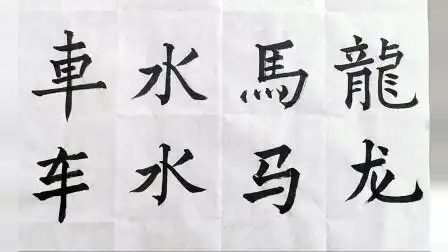 車水馬龍
车水马龙